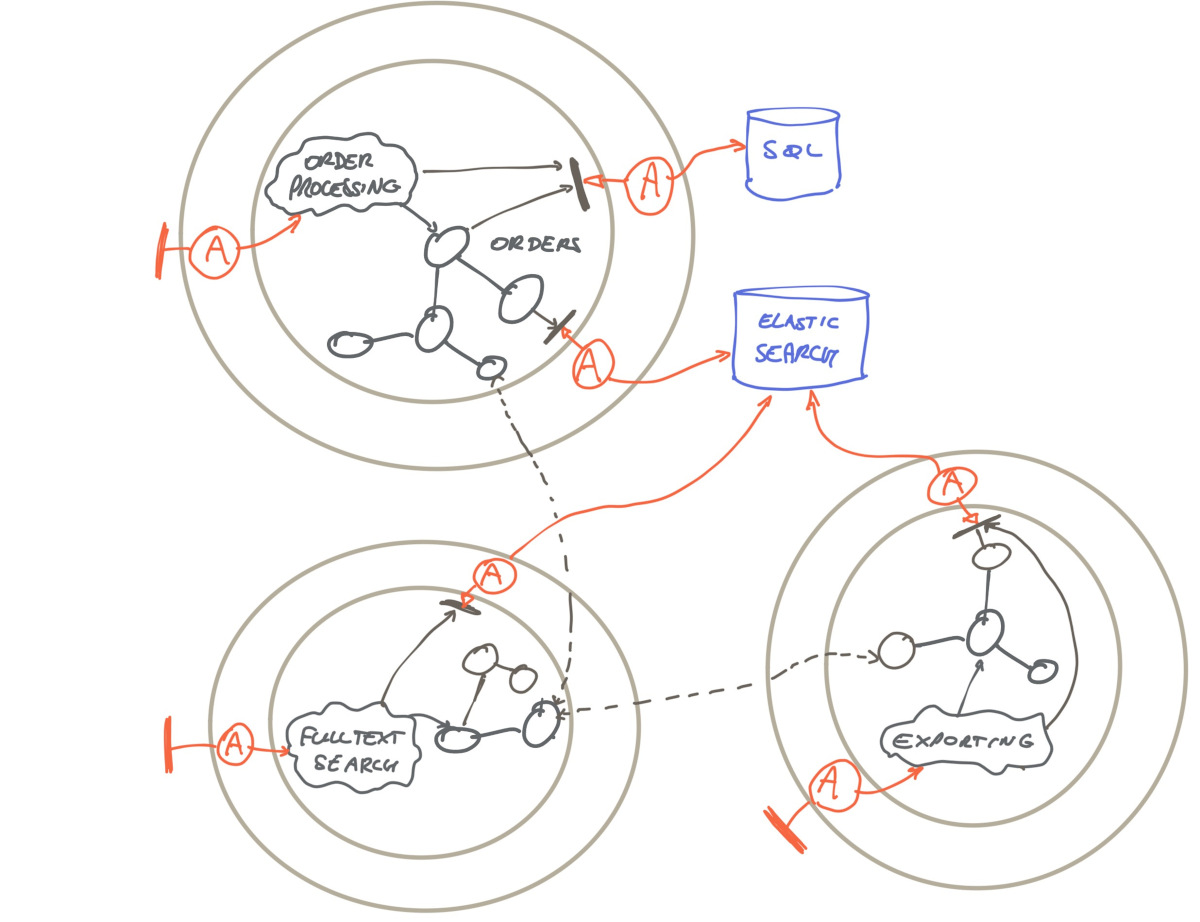 ORDER
PROCESSING
A
SQL
A
ORDERS
A
ELASTIC
SEARCH
A
A
A
FULLTEXT
SEARCH
EXPORTING
A